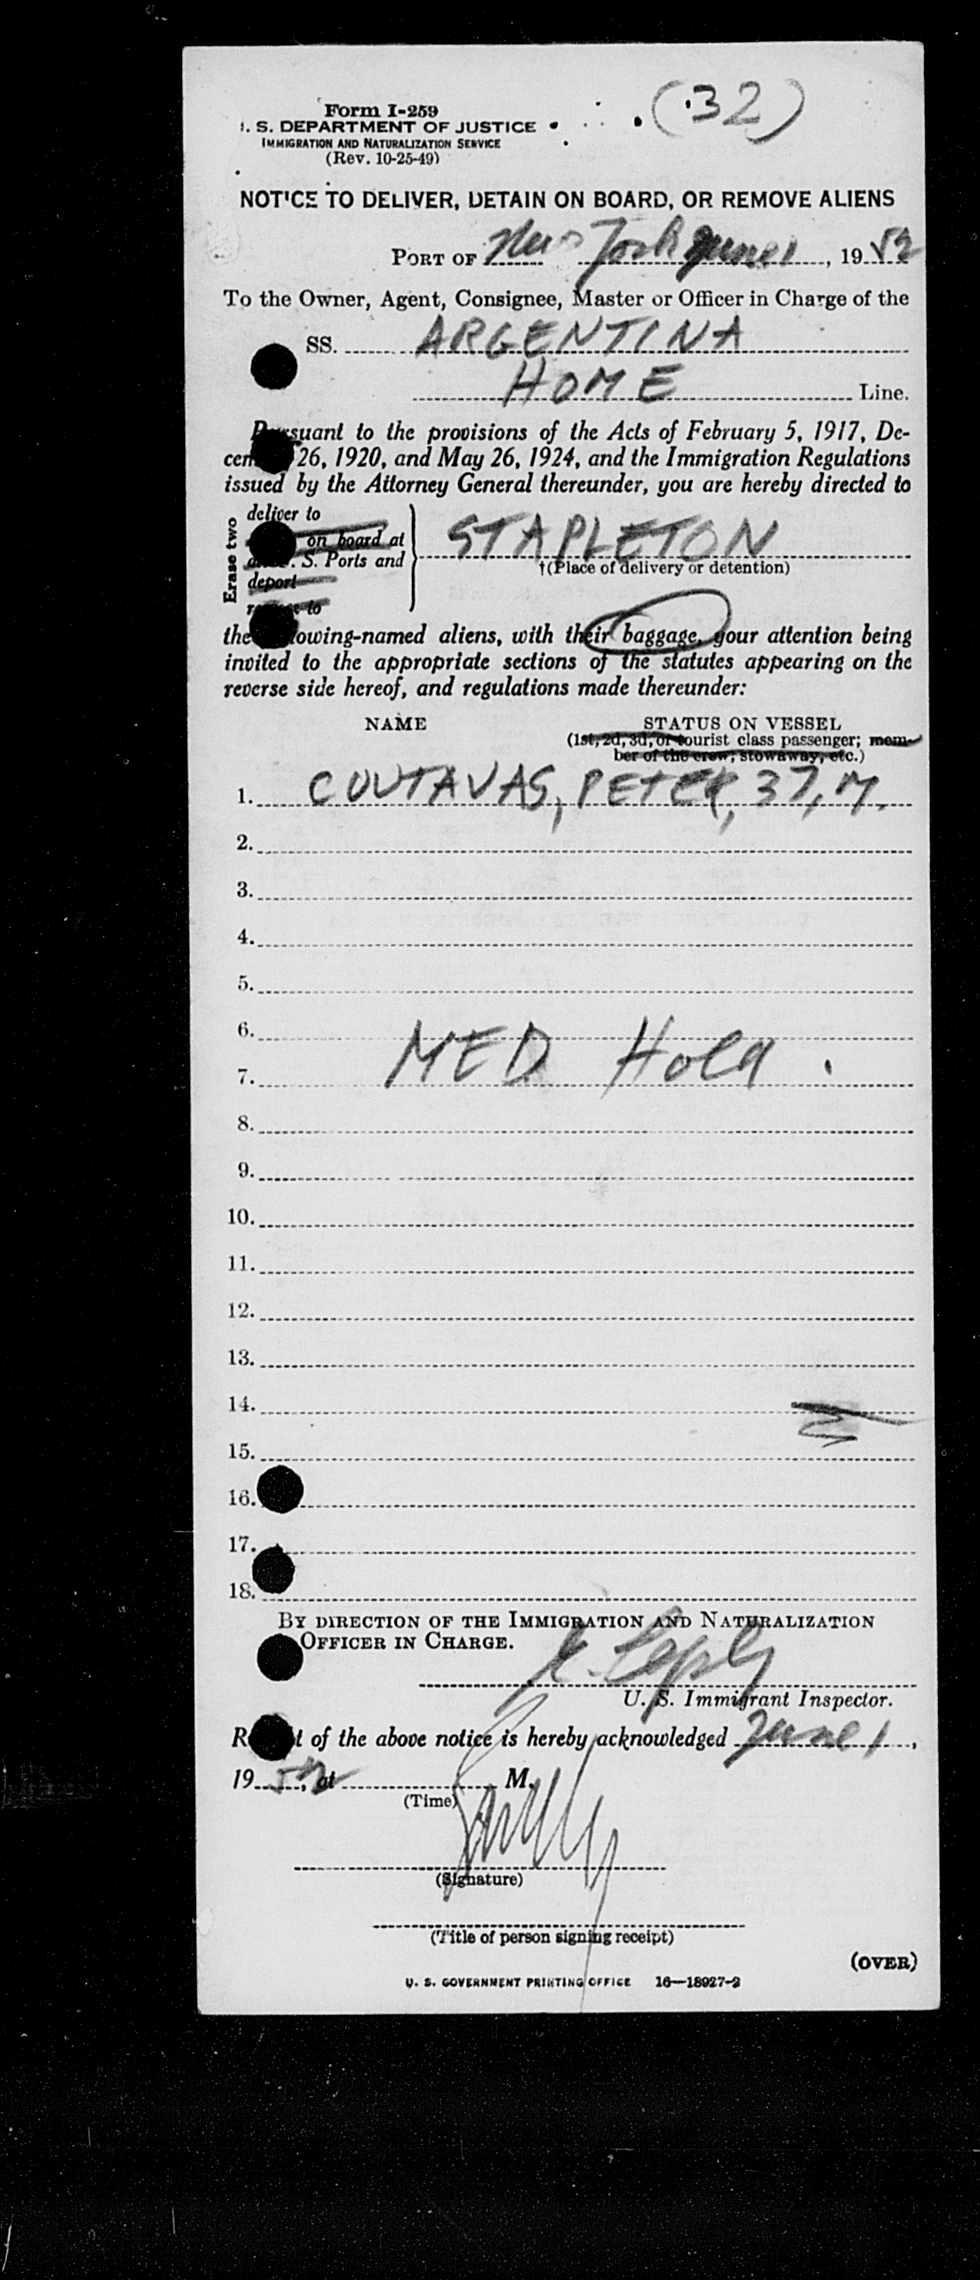 (32)
Form I-259
. S. DEPARTMENT OF JUSTICE
IMMIGRATION AND NATURALIZATION SERVICE
(Rev. 10-25-49)
NOTICE TO DELIVER, DETAIN ON BOARD, OR REMOVE ALIENS
PORT OF New York June 1, 19 52
To the Owner, Agent, Consignee, Master or Officer in Charge of the
SS. ARGENTINA
HOME Line.
Pursuant to the provisions of the Acts of February 5, 1917, De-
cem 26, 1920, and May 26, 1924, and the Immigration Regulations
issued by the Attorney General thereunder, you are hereby directed to
Erase two
deliver to
on board at
S. Ports and
deport
to
STAPLETON
†(Place of delivery or detention)
the owing-named aliens, with their baggage, your attention being
invited to the appropriate sections of the statutes appearing on the
reverse side hereof, and regulations made thereunder:
NAME STATUS ON VESSEL
(1st, 2d, 3d, or tourist class passenger; mem-
ber of the crew; stowaway, etc.)
1. COUTAVAS, PETER, 37, M.
2.
3.
4.
5.
6.
MED Hold.
7.
8.
9.
10.
11.
12.
13.
14.
15.
16.
17.
18.
BY DIRECTION OF THE IMMIGRATION AND NATURALIZATION
OFFICER IN CHARGE.
U. S. Immigrant Inspector.
R t of the above notice is hereby acknowledged June 1,
19 52, at M.
(Time)
(Signature)
(Title of person signing receipt)
(OVER)
U. S. GOVERNMENT PRINTING OFFICE 16—18927-2